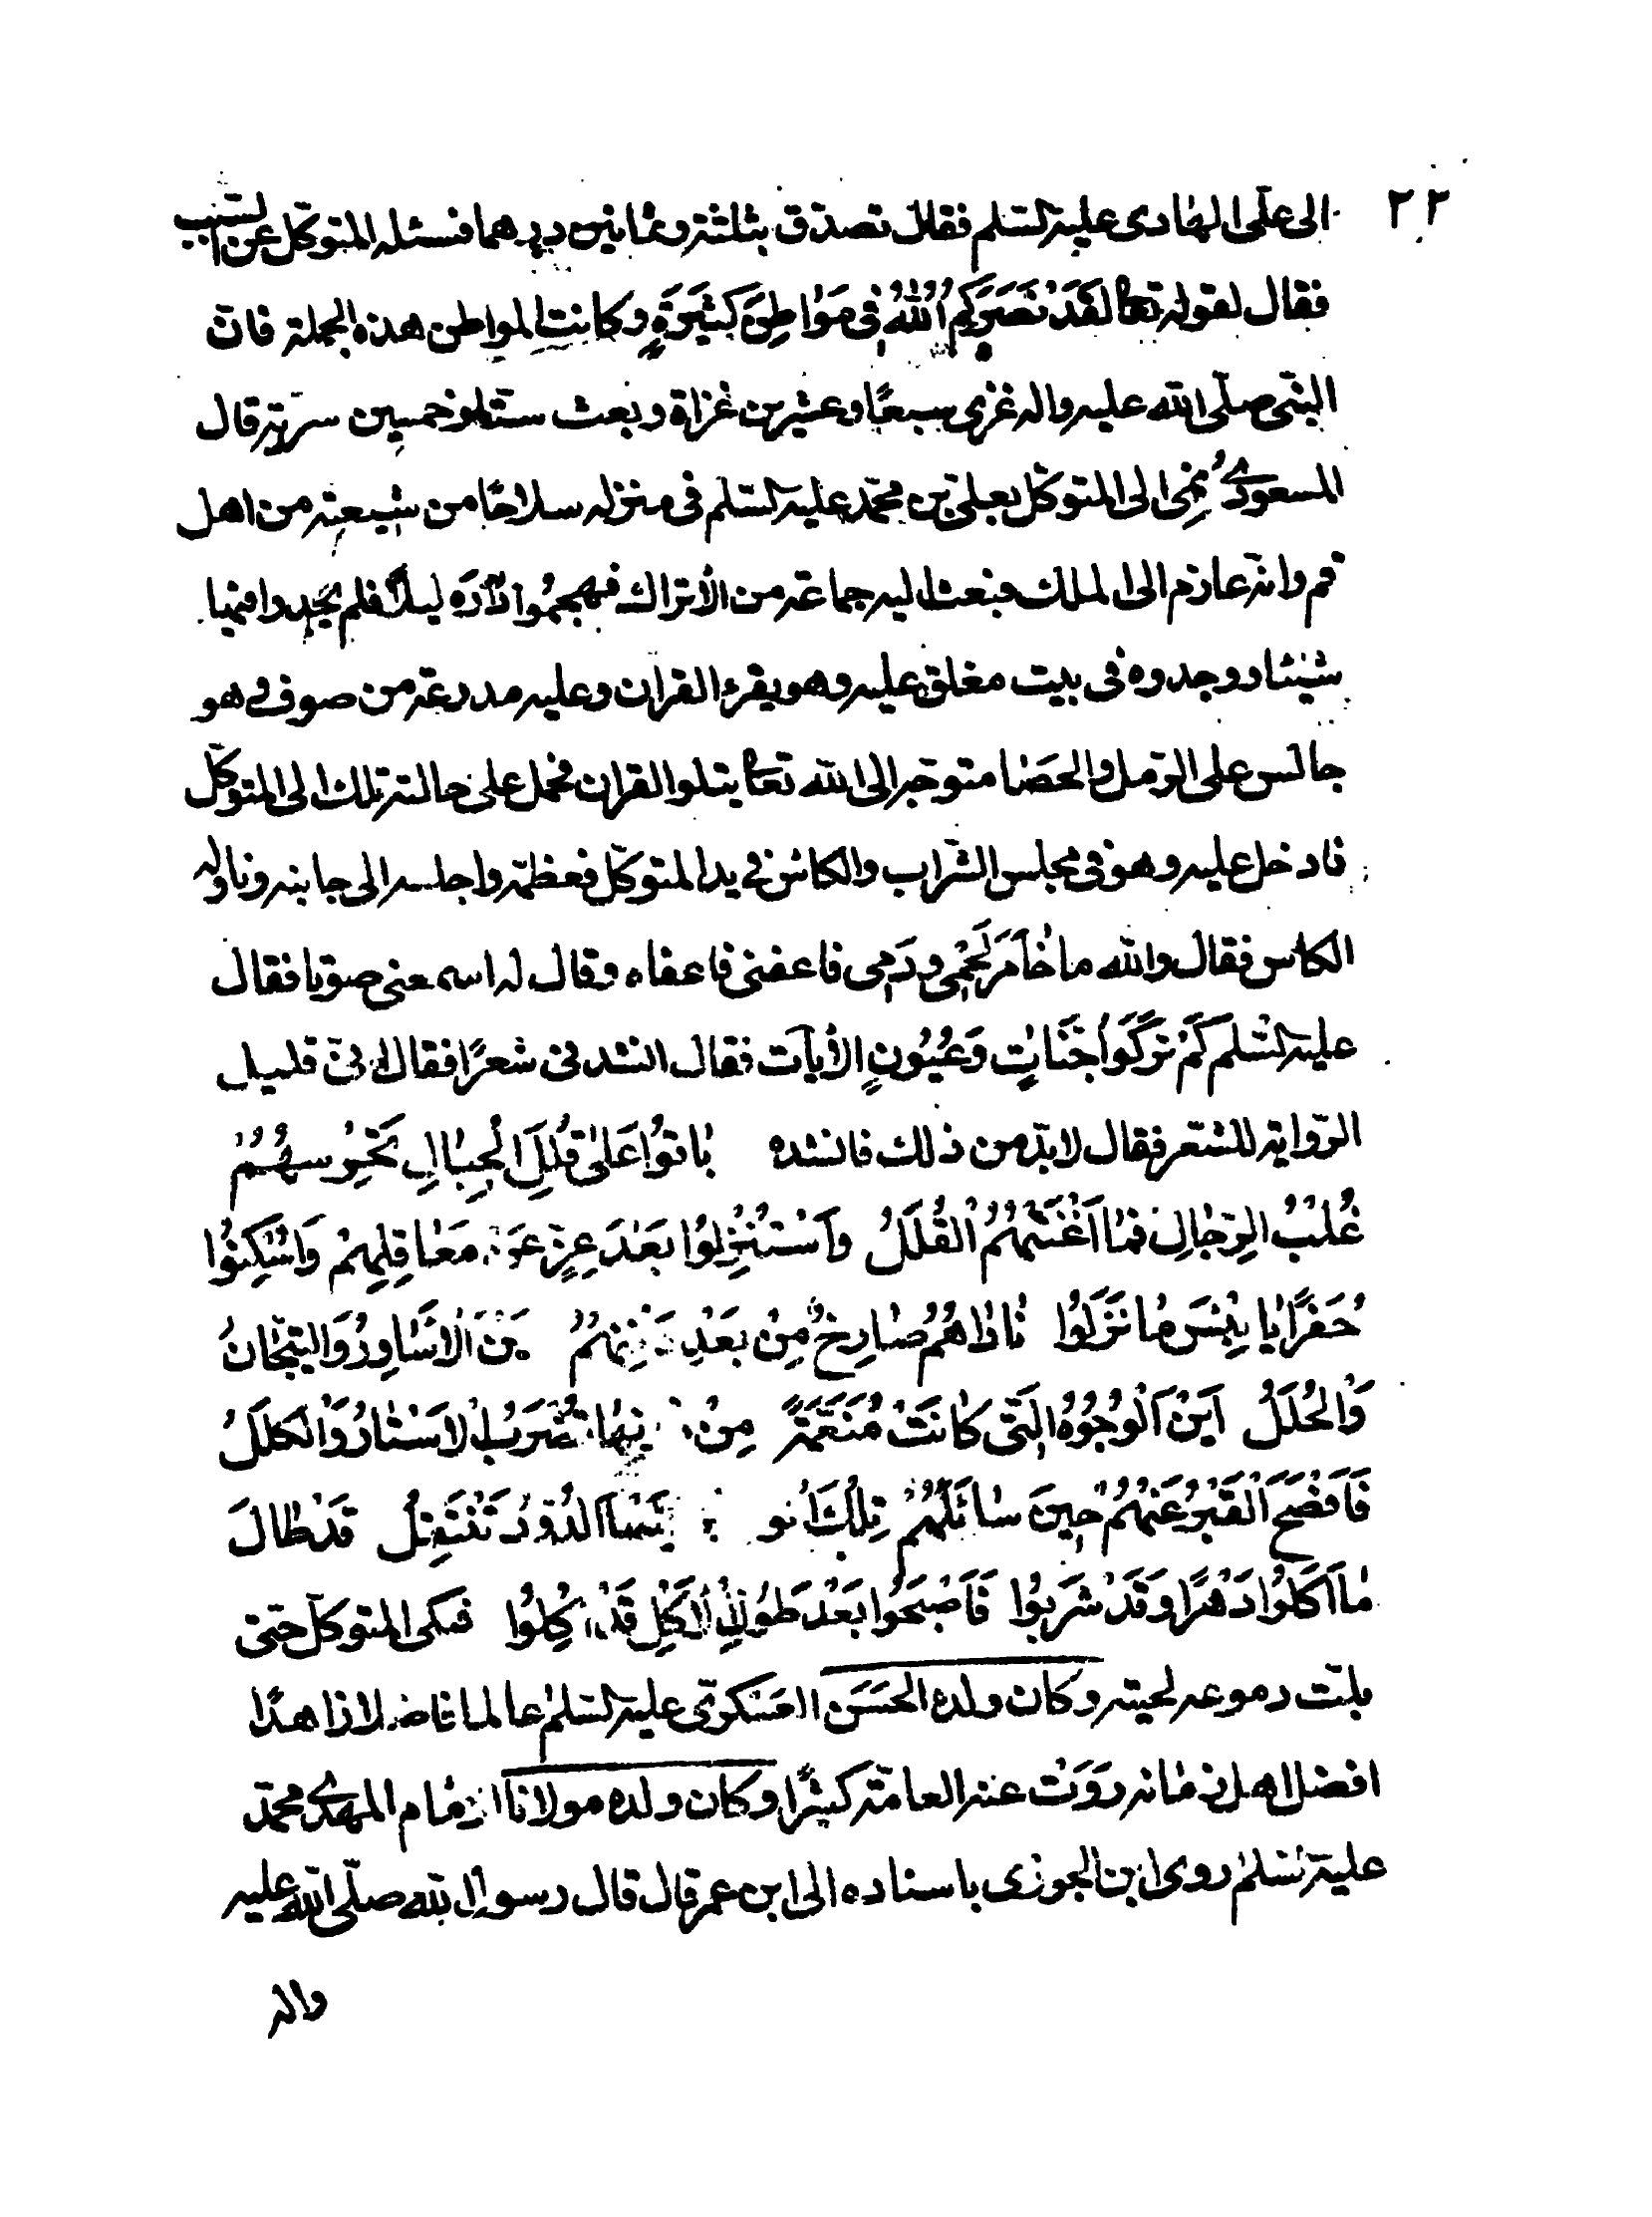 ٢٢
الى على الهادى عليه السلم فقال تصدق بثلثة وثمانين درهما فسئله المتوكل عن السبب
فقال لقوله تعا لَقَدْ نَصَرَكُمُ اللهُ فى مَوَاطِنَ كَثيرَةٍ وكانت المواطن هذه الجملة فان
النبى صلى الله عليه واله غزى سبعًا وعشرين غزاة وبعث ستا وخمسين سرية قال
المسعودى نمى الى المتوكل بعلى بن محمد عليه السلم فى منزله سلاحًا من شيعته من اهل
قم وانه عازم الى الملك فبعث اليه جماعة من الأتراك فهجموا دَارَه ليلًا فلم يجدوا فيها
شيئا ووجدوه فى بيت مغلق عليه وهو يقرء القران وعليه مدرعة من صوف و هو
جالس على الرمل والحصَا متوجه الى الله تعا يتلوا القران فحمل على حالته تلك الى المتوكل
فادخل عليه وهو فى مجلس الشراب والكاس فى يد المتوكل فعظمه واجلسه الى جانبه وناوله
الكاس فقال والله ما خَامَرَ لَحْمِى ودَمِى فاعفنى فاعفاه وقال له اسمعنى صوتا فقال
عليه السلم كَمْ تَرَكُوا جَنَّاتٍ وَعُيُونٍ الأيات فقال انشدنى شعرًا فقال انى قليل
الرواية للشعر فقال لابد من ذلك فانشده بَاتُوا عَلىٰ قُلَلِ الْجِبالِ تَحْرُسُهُمْ
غُلْبُ الرِّجالِ فَمٰا اَغْنَتْهُمُ الْقُلَلُ وَاسْتُنْزِلُوا بَعْدَ عِزٍّ عَنْ مَعَاقِلِهِمْ وَاُسْكِنُوا
حُفَرًا يَا بِئْسَ مٰا نَزَلُوا نٰادٰاهُمُ صٰارِخٌ مِنْ بَعْدِ دَفْنِهِمُ اَيْنَ الْاَسَاوِرُ وَالتّيجَانُ
وَالْحُلَلُ اَيْنَ الْوُجُوهُ الَّتى كَانَتْ مُنَعَّمَةً مِنْ دُونِهَا تُضْرَبُ الْاَسْتَارُ وَالْكِلَلُ
فَاَفْصَحَ الْقَبْرُ عَنْهُمُ حِينَ سَائَلَهُمْ تِلْكَ الْوُجُوهُ عَلَيْهَا الدُّودُ تَنْتَقِلُ قَدْ طَالَ
مٰا اَكَلُوا دَهْرًا وَقَدْ شَرِبُوا فَاَصْبَحُوا بَعْدَ طُولِ الْاَكْلِ قَدْ اُكِلُوا فبكى المتوكل حتى
بلت دموعه لحيته وكان ولده الحَسَن العَسْكرى عليه السلم عالما فاضلا زاهدًا
افضل اهل زمانه رَوَتْ عنه العامّة كثيرًا وكان ولده مولانا الامام المهدى محمد
عليه السلم روى ابن الجوزى باسناده الى ابن عمر قال قال رسول الله صلى الله عليه
واله